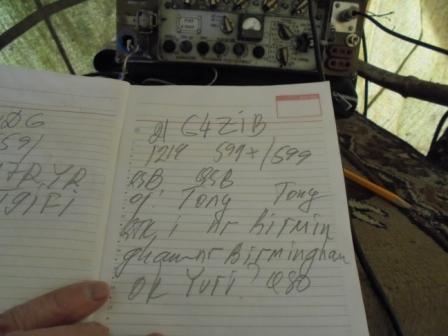 DG
59/
7RYR
giFi
2) G4ZiB
1219 599+/599
QSB QSB
op: Tony Tony
QTH i nr Birmin
gham nr Birmingham
OK Yuri QSO